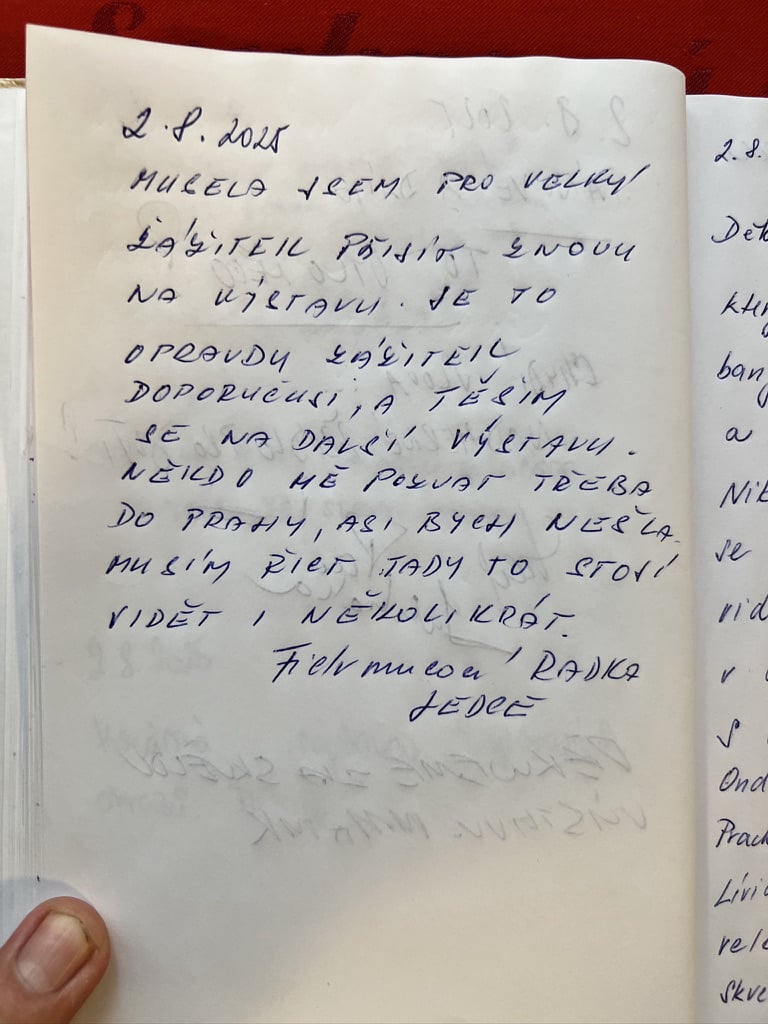 2.8.2025
MUSELA JSEM PRO VELKÝ
ZÁŽITEK PŘIJÍT ZNOVU
NA VÝSTAVU. JE TO
OPRAVDU ZÁŽITEK
DOPORUČUSI, A TĚŠÍM
SE NA DALŠÍ VÝSTAVU.
NĚKDO MĚ POZVAT TŘEBA
DO PRAHY, ASI BYCH NEŠLA.
MUSÍM ŘÍCT TADY TO STOJÍ
VIDĚT I NĚKOLIKRÁT.
RADKA
JEDCE
2.8.
Dět
kter
ban
a
Nik
se
vid
v
s
Ond
Prach
Lívi
vele
skve